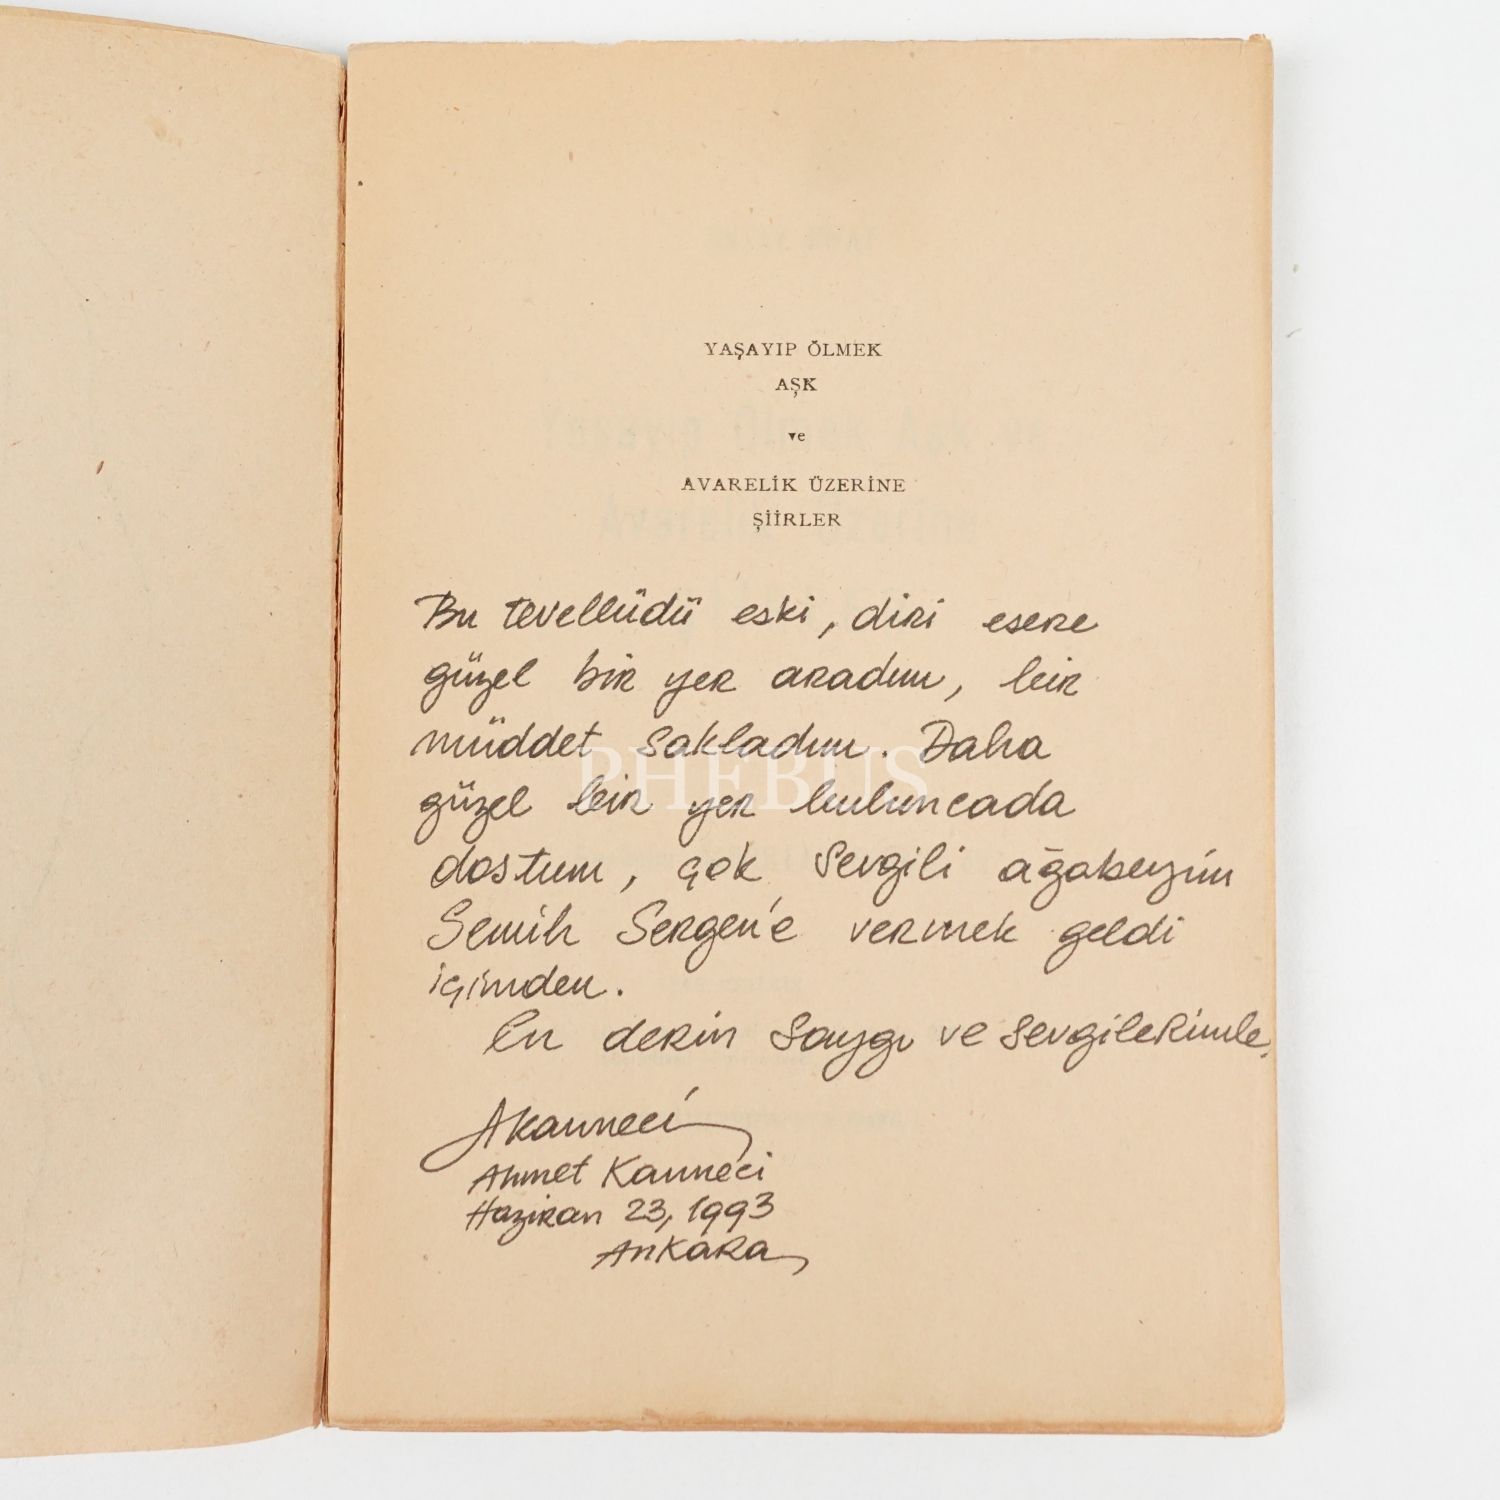 YAŞAYIP ÖLMEK
AŞK
ve
AVARELİK ÜZERİNE
ŞİİRLER
Bu tevellüdü eski, diri esere
güzel bir yer aradım, bir
müddet sakladım. Daha
PHEBUS
güzel bir yer buluncada
dostum, çok sevgili ağabeyim
Semih Sergen'e vermek geldi
içimden.
En derin saygı ve sevgilerimle,
AKanneci
Ahmet Kanneci
Haziran 23, 1993
Ankara